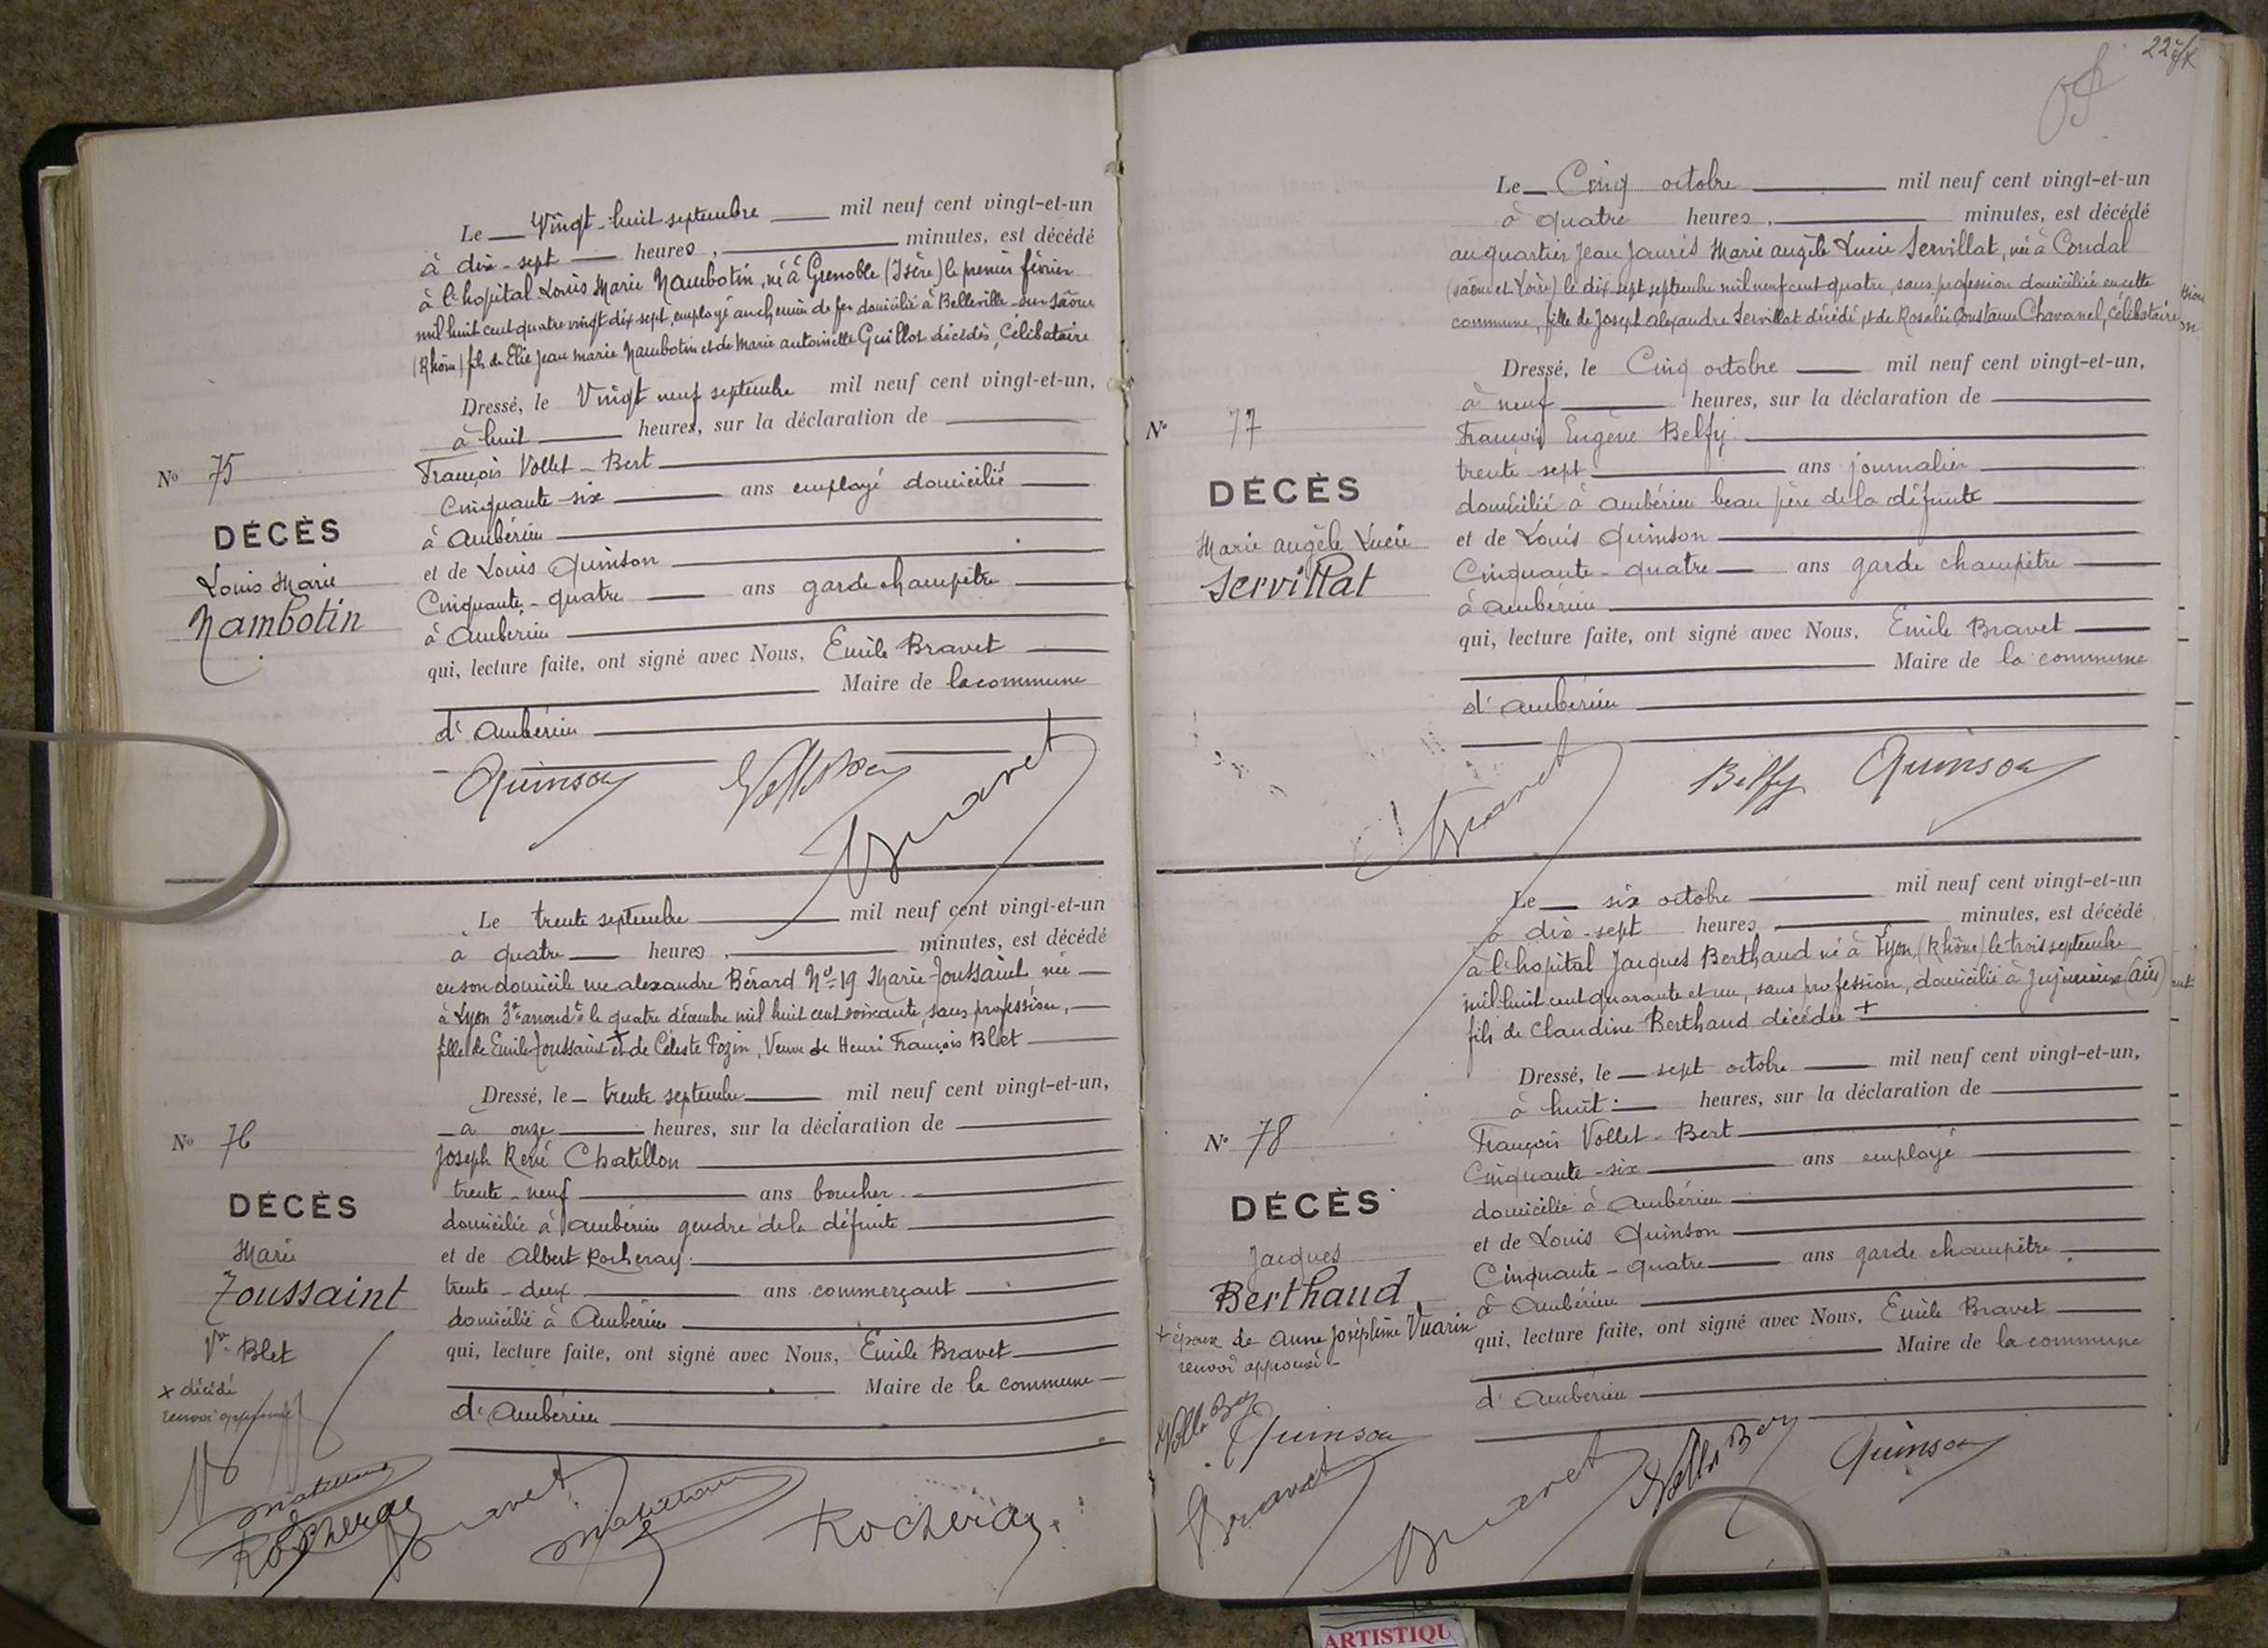 Le Vingt-huit septembre mil neuf cent vingt-et-un
à dix-sept heures, minutes, est décédé
à l'hopital Louis Marie Nambotin, né à Grenoble (Isère) le premier février
mil huit cent quatre vingt dix sept, employé au chemin de fer domicilié à Belleville-sur Saône
(Rhône) fils de Elie Jean marie Nambotin et de Marie antoinette Guillot décédés, Célibataire
Dressé, le Vingt neuf septembre mil neuf cent vingt-et-un,
à huit heures, sur la déclaration de
François Vollet-Bert
Cinquante-six ans employé domicilié
à Ambérieu
et de Louis Quinson
Cinquante-quatre ans garde champêtre
à Ambérieu
qui, lecture faite, ont signé avec Nous, Emile Bravet
Maire de la commune
d'Ambérieu
No 75
DÉCÈS
Louis Marie
Nambotin
Quinson
Bravet
Le trente septembre mil neuf cent vingt-et-un
à quatre heures, minutes, est décédé
en son domicile rue alexandre Bérard No 19 Marie Toussaint née
à Lyon 3e arrondt le quatre décembre mil huit cent soixante, sans profession,
fille de Emile Toussaint + et de Céleste Pozin, Veuve de Henri François Blet
Dressé, le trente septembre mil neuf cent vingt-et-un,
a onze heures, sur la déclaration de
Joseph René Chatillon
trente-neuf ans boucher
domicilié à Ambérieu gendre de la défunte
et de Albert Rocheray
trente-deux ans commerçant
domicilié à Ambérieu
qui, lecture faite, ont signé avec Nous, Emile Bravet
Maire de la commune
d'Ambérieu
No 76
DÉCÈS
Marie
Toussaint
Ve Blet
+ décédé
renvoi approuvé
Rocheray
Bravet
Rocheray
22
Le Cinq octobre mil neuf cent vingt-et-un
à quatre heures, minutes, est décédé
au quartier Jean Jaurès Marie angèle Lucie Servillat, née à Condal
(saône et Loire) le dix-sept septembre mil neuf cent quatre, sans profession domiciliée en cette
commune, fille de Joseph alexandre Servillat décédé et de Rosalie Constance Chavanel, célibataire
Dressé, le Cinq octobre mil neuf cent vingt-et-un,
à neuf heures, sur la déclaration de
François Eugène Belfy
trente-sept ans journalier
domicilié à Ambérieu beau père de la défunte
et de Louis Quinson
Cinquante-quatre ans garde champêtre
à Ambérieu
qui, lecture faite, ont signé avec Nous, Emile Bravet
Maire de la commune
d'Ambérieu
No 77
DÉCÈS
Marie angèle Lucie
Servillat
Bravet
Belfy
Quinson
Le six octobre mil neuf cent vingt-et-un
à dix-sept heures, minutes, est décédé
à l'hopital Jacques Berthaud né à Lyon (Rhône) le trois septembre
mil huit cent quarante et un, sans profession, domicilié à Jujurieux (ain)
fils de Claudine Berthaud décédée +
Dressé, le sept octobre mil neuf cent vingt-et-un,
à huit heures, sur la déclaration de
François Vollet-Bert
Cinquante-six ans employé
domicilié à Ambérieu
et de Louis Quinson
Cinquante-quatre ans garde champêtre
à Ambérieu
qui, lecture faite, ont signé avec Nous, Emile Bravet
Maire de la commune
d'Ambérieu
No 78
DÉCÈS
Jacques
Berthaud
+ époux de anne Joséphine Vuarin
renvoi approuvé
Quinson
Bravet
Bravet
Quinson
ARTISTIQU